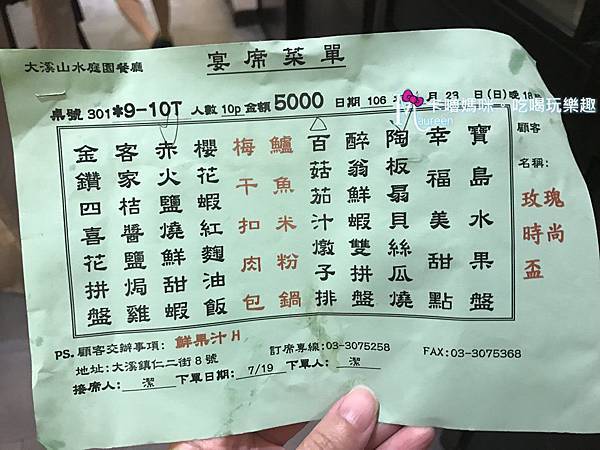 大溪山水庭園餐廳
宴席菜單
桌號 301*9-10T 人數 10p 金額 5000 日期 106 月 23 日(日)晚18
卡哇媽咪。吃喝玩樂趣
Maureen
顧客
名稱:
玫瑰
時尚
盃
金鑽四喜花拼盤
客家桔醬鹽焗雞
赤火鹽燒鮮甜蝦
櫻花蝦紅麴油飯
梅干扣肉包
鱸魚米粉鍋
百菇茄汁燉子排
醉翁鮮蝦雙拼盤
陶板扇貝絲瓜燒
幸福美甜點
寶島水果盤
PS. 顧客交辦事項: 鮮果汁H
地址:大溪鎮仁二街8號
訂席專線:03-3075258
FAX:03-3075368
接席人: 潔 下單日期: 7/19 下單人: 潔